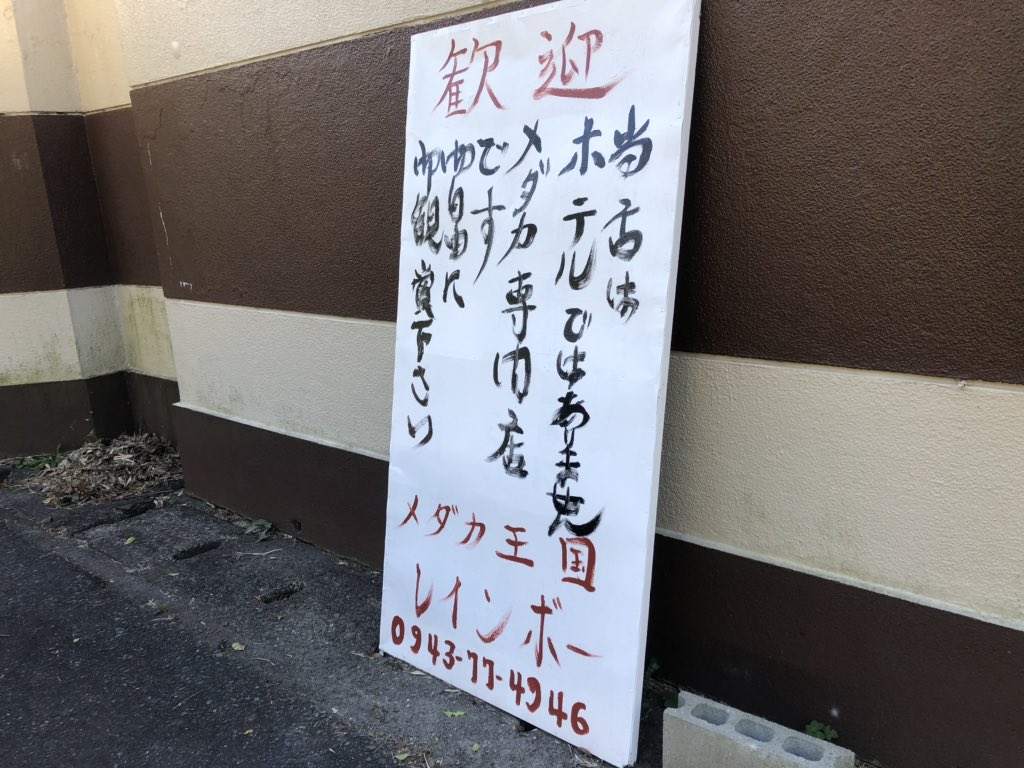 歓迎
当店は
ホテルではありません
メダカ専門店
です
御自由に
御観賞下さい
メダカ王国
レインボー
0943-77-4946